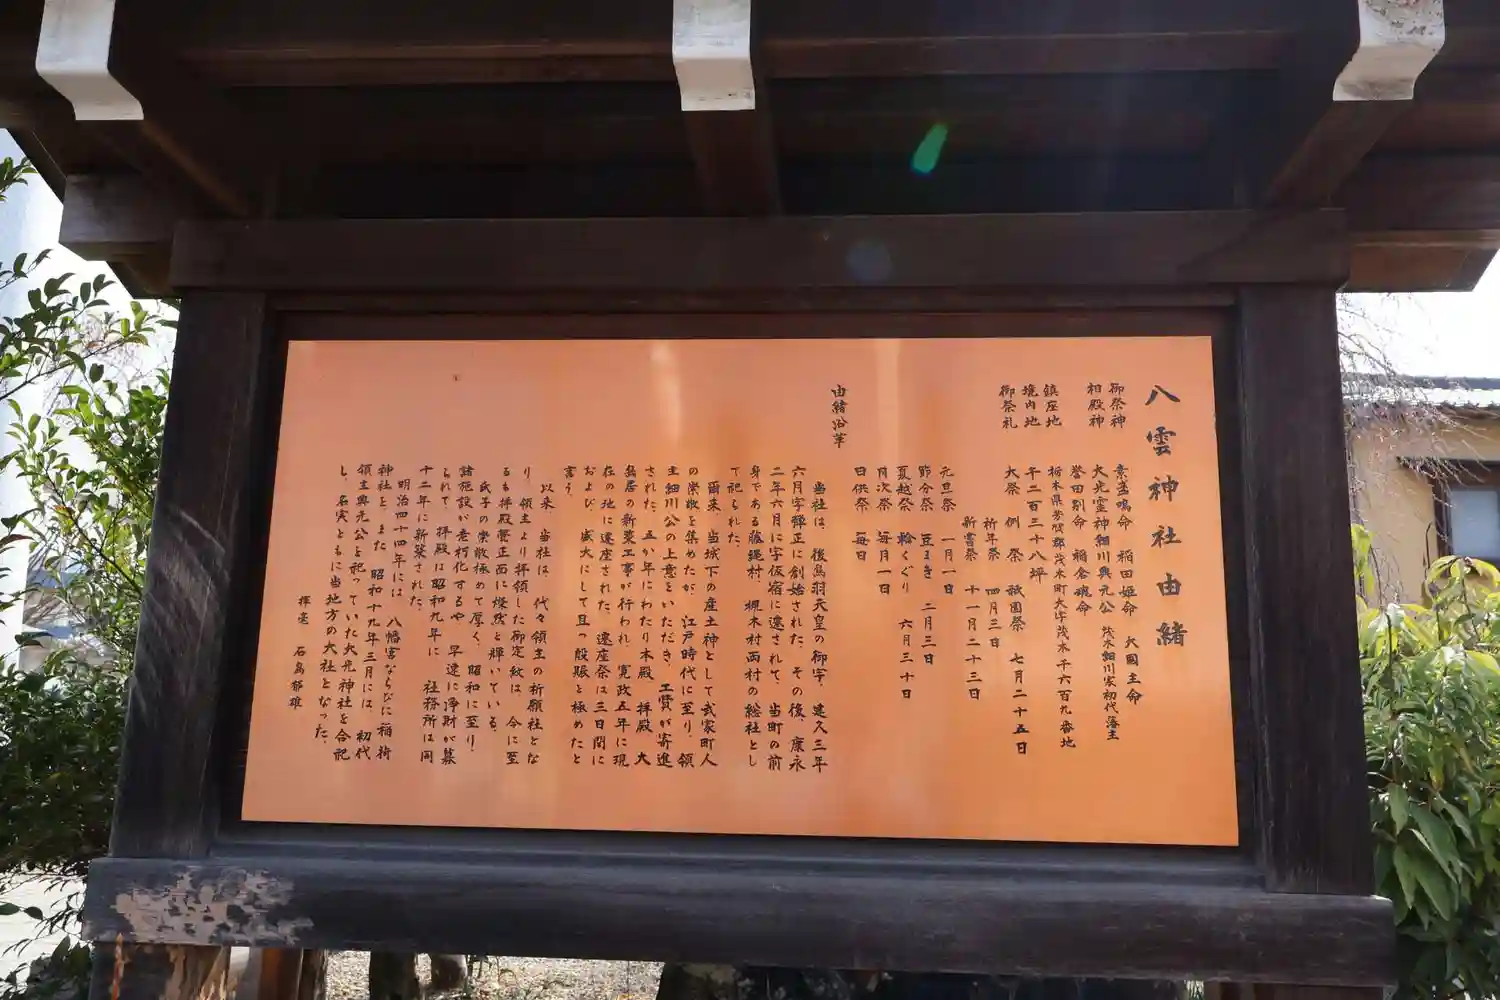 八雲神社由緒
御祭神 素盞嗚命 稲田姫命 大國主命
相殿神 大光霊神細川興元公 茂木細川家初代藩主
誉田別命 稲倉魂命
鎮座地 栃木県芳賀郡茂木町大字茂木千六百九番地
境内地 千二百三十八坪
御祭礼 大祭 例祭 祇園祭 七月二十五日
祈年祭 四月三日
新嘗祭 十一月二十三日
元旦祭 一月一日
節分祭 豆まき 二月三日
夏越祭 輪くぐり 六月三十日
月次祭 毎月一日
日供祭 毎日
由緒沿革
当社は、後鳥羽天皇の御宇、建久三年
六月字弾正に創始された。その後、康永
二年六月に字仮宿に遷されて、当町の前
身である藤縄村、槻木村両村の総社とし
て祀られた。
爾来、当城下の産土神として武家町人
の崇敬を集めたが、江戸時代に至り、領
主細川公の上意をいただき、工費が寄進
された。五か年にわたり本殿、拝殿、大
鳥居の新築工事が行われ、寛政五年に現
在の地に遷座された。遷座祭は三日間に
および、盛大にして且つ殷賑を極めたと
言う。
以来、当社は、代々領主の祈願社とな
り、領主より拝領した御定紋は、今に至
るも拝殿管正面に燦然と輝いている。
氏子の崇敬極めて厚く、昭和に至り、
諸施設が老朽化するや、早速に浄財が募
られて、拝殿は昭和九年に、社務所は同
十二年に新築された。
明治四十四年には、八幡宮ならびに稲荷
神社を、また、昭和十九年三月には、初代
領主興元公を祀っていた大光神社を合祀
し、名実ともに当地方の大社となった。
揮毫 石島郁雄